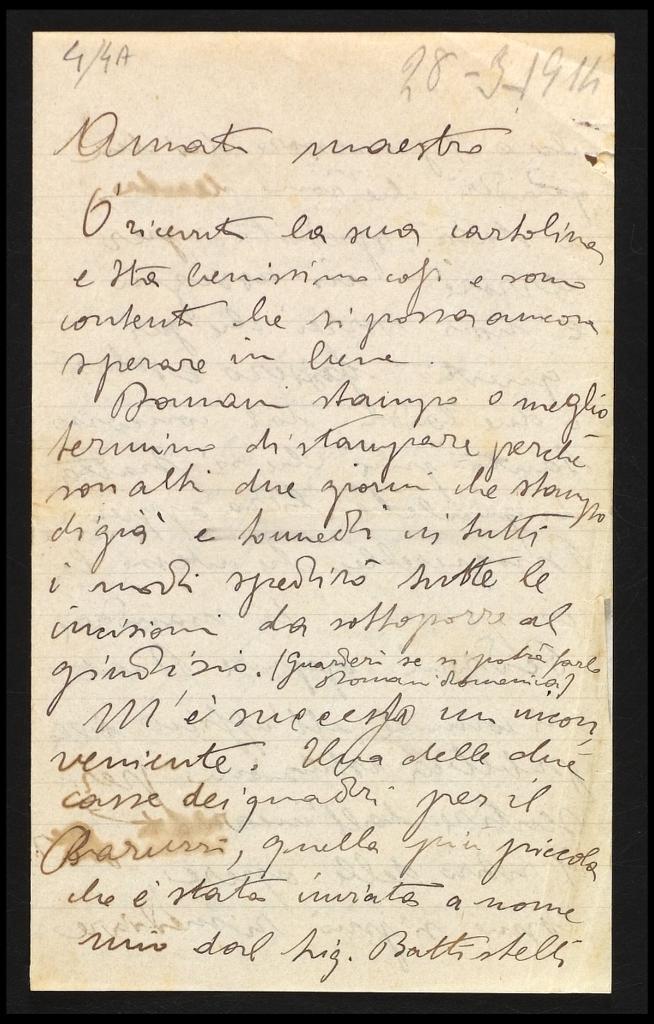 4/4A
28-3-1914
Amato maestro
Ò ricevuto la sua cartolina
e sta benissimo così e sono
contento che si possa ancora
sperare in bene.
Domani stampo o meglio
termino di stampare perchè
son altri due giorni che stampo
digià e lunedì in tutti
i modi spedirò tutte le
incisioni da sottoporre al
giudizio. (Guarderi se si potrà farlo
domani domenica)
M'è successo un incon,
veniente. Una delle due
casse dei quadri per il
Baruzzi, quella più piccola
che è stata inviata a nome
mio dal Sig. Battistelli